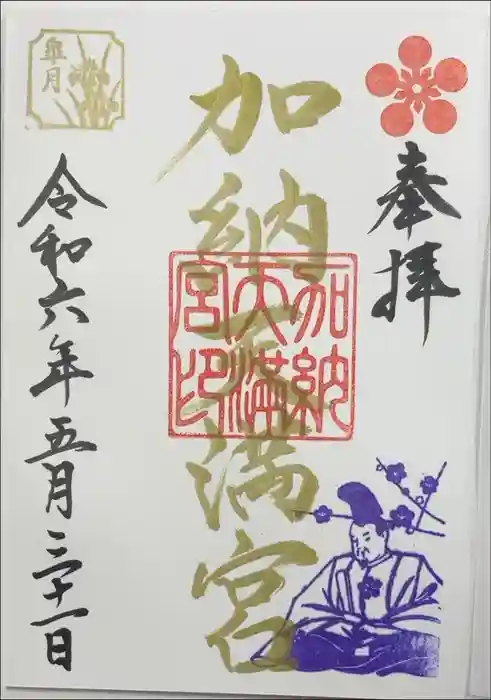 奉拝
加納天満宮
加納天満宮印
皐月
令和六年五月三十一日